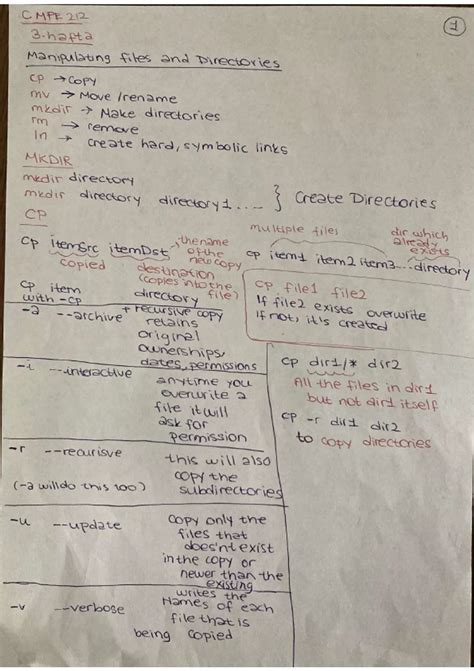 CMPE 212
1
3.hafta
Manipulating files and Directories
cp → copy
mv → Move /rename
mkdir → Make directories
rm → remove
ln → create hard, symbolic links
MKDIR
mkdir directory
mkdir directory directory1.... } Create Directories
CP
cp itemSrc itemDst → the name of the new copy
copied
destination (copies into the file)
multiple files
dir which already exists
cp item1 item2 item3...directory
cp item directory
with -cp
-a --archive + recursive copy
retains
original
ownerships,
dates, permissions
-i --interactive anytime you
overwrite a
file it will
ask for
permission
-r --recurisve this will also
copy the
(-a will do this too) subdirectories
-u --update copy only the
files that
does'nt exist
in the copy or
newer than the
existing
-v --verbose writes the
names of each
file that is
being copied
cp file1 file2
If file2 exists overwrite
If not, it's created
cp dir1/* dir2
All the files in dir1
but not dir1 itself
cp -r dir1 dir2
to copy directories